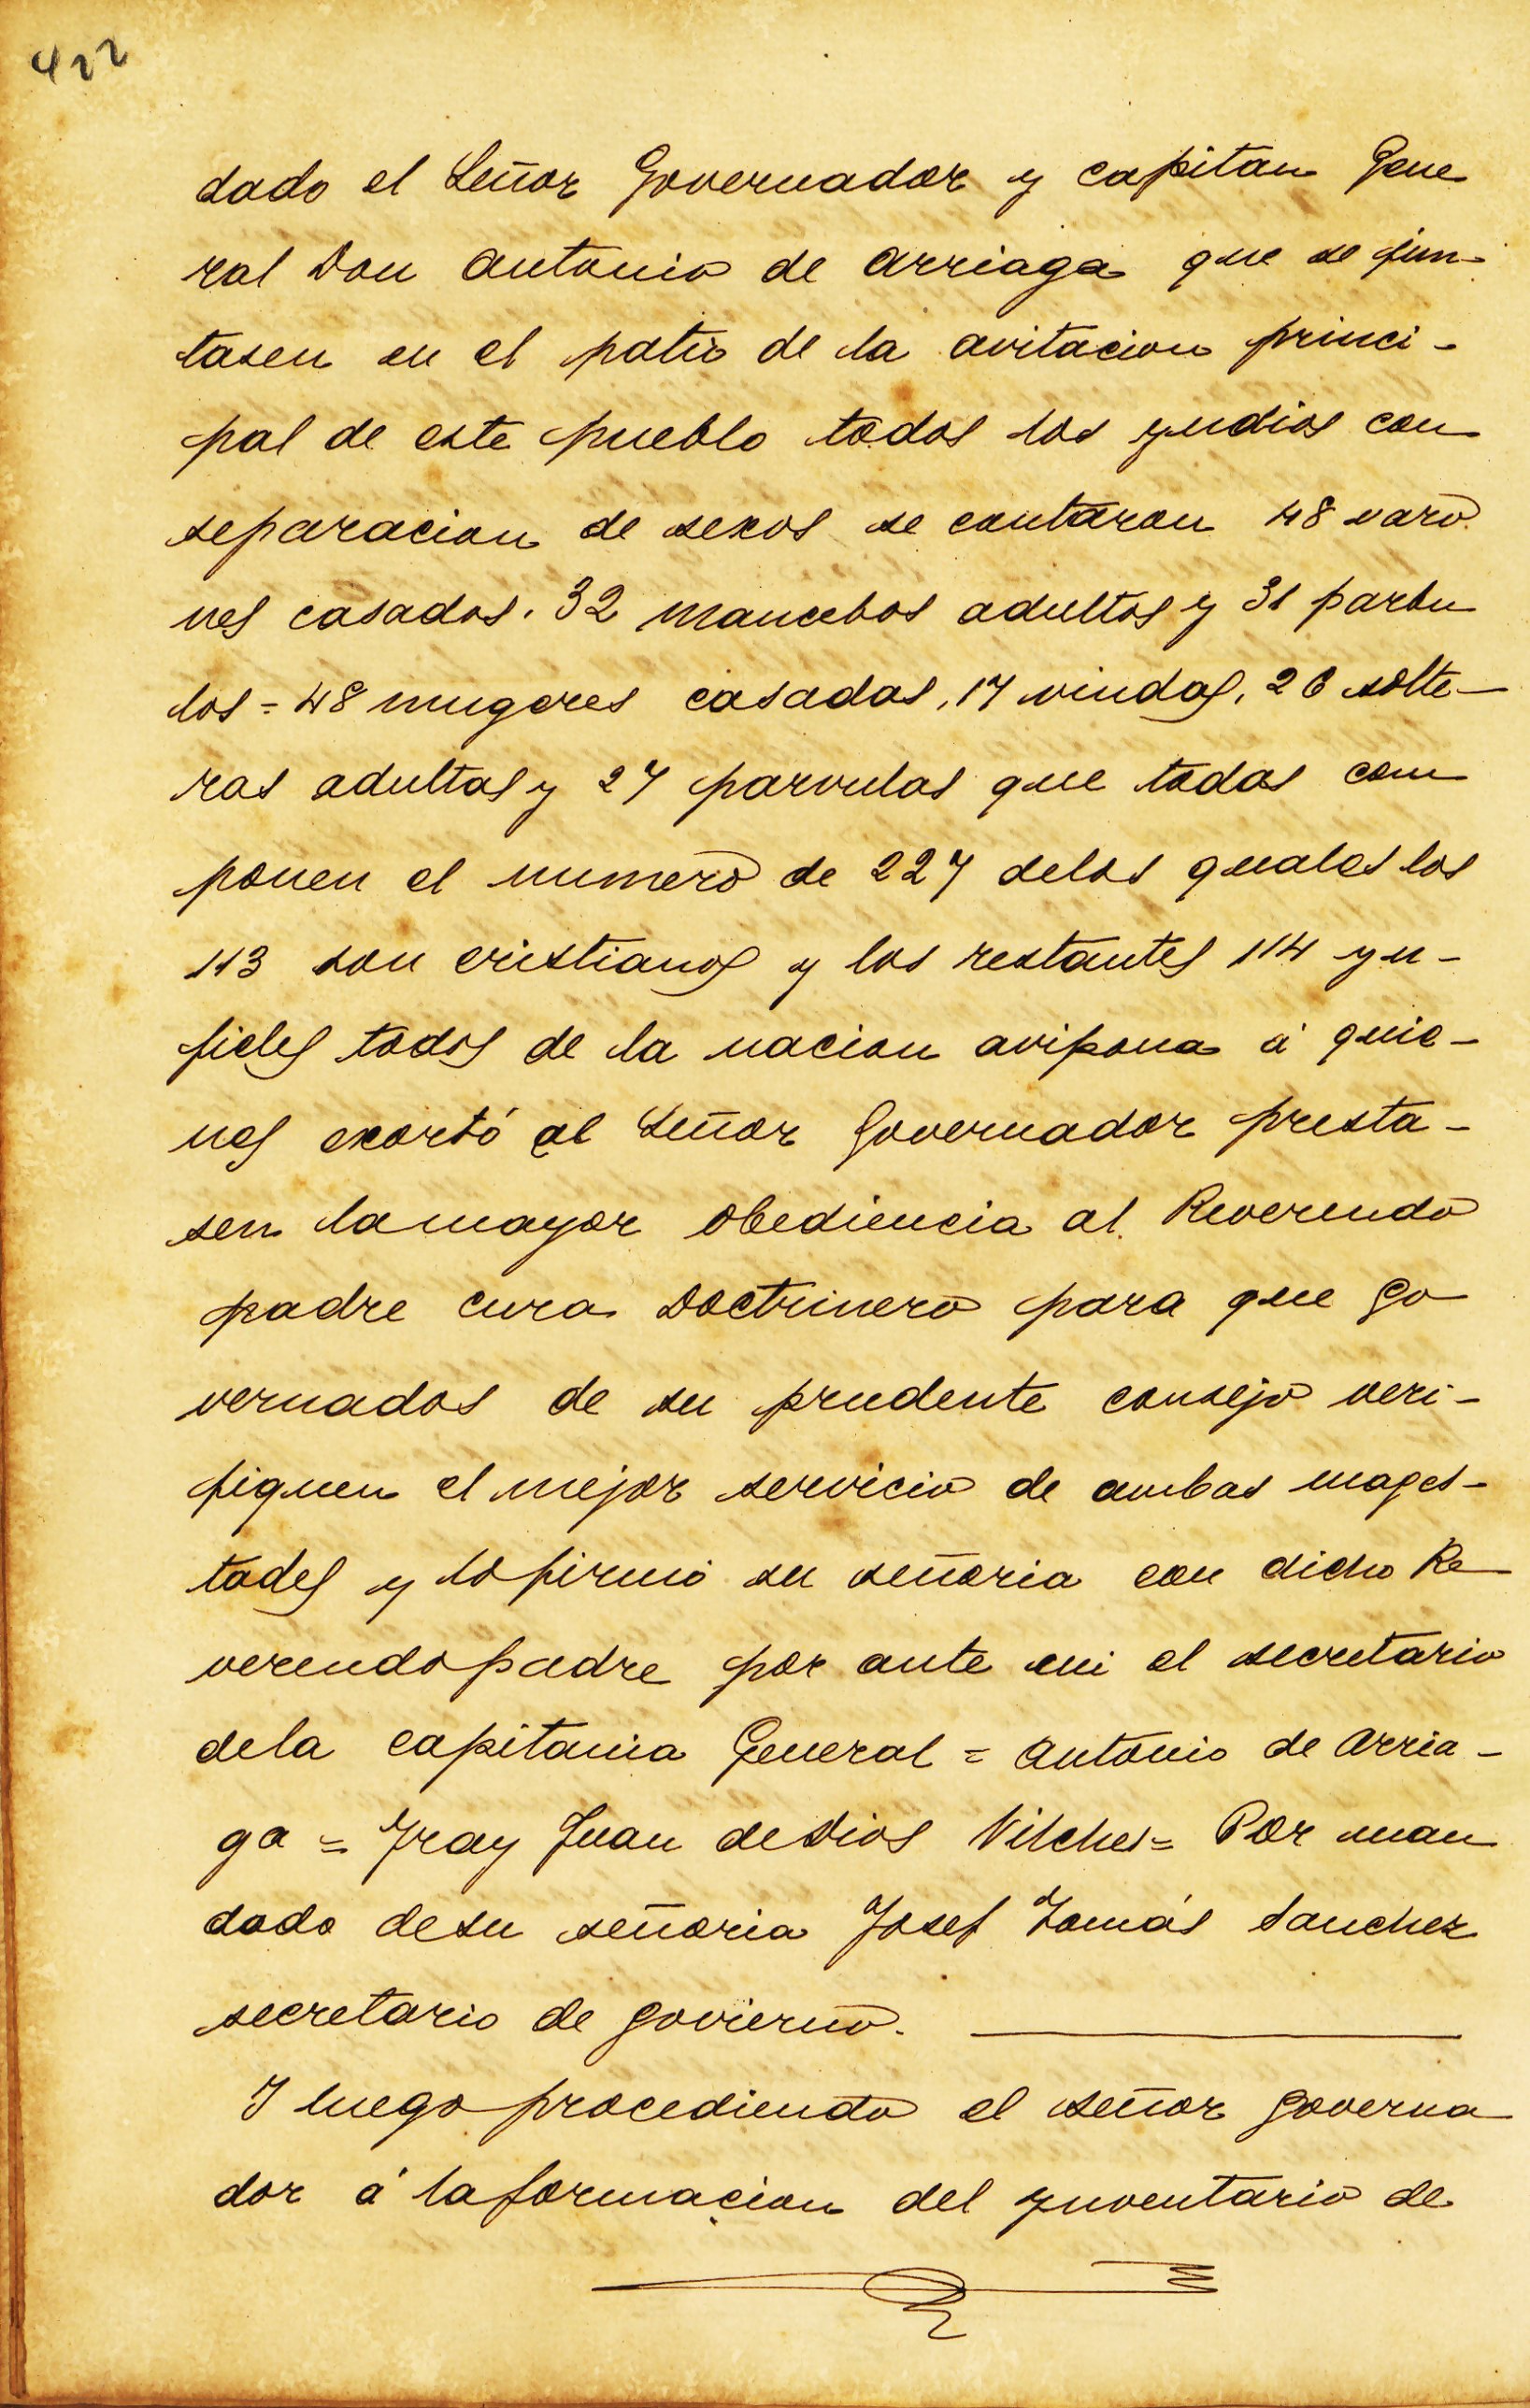 422
dado el Señor Governador y capitan Gene
ral Don Antonio de Arriaga que se jun-
tasen en el patio de la avitacion princi-
pal de este pueblo todos los yndios con
separacion de sexos se contaron 48 varo
nes casados. 32 mancebos adultos y 31 parbu
los = 48 mugeres casadas, 17 viudas, 26 solte-
ras adultas y 27 parvulas que todas com
ponen el numero de 227 delos quales los
113 son cristianos y los restantes 114 yn-
fieles todos de la nacion avipona á quie-
nes exortó el Señor Governador presta-
sen lamayor obediencia al Reverendo
padre cura Doctrinero para que go
vernados de su prudente consejo veri-
fiquen el mejor servicio de ambas mages-
tades y lo firmó su señoria con dicho Re
verendo padre por ante mi el secretario
dela capitania General = Antonio de Arria-
ga = Fray Juan deDios Vilches = Por man
dado desu señoria Josef Tomás Sanchez
secretario de govierno.
I luego procediendo el señor governa
dor á laformacion del ynventario de